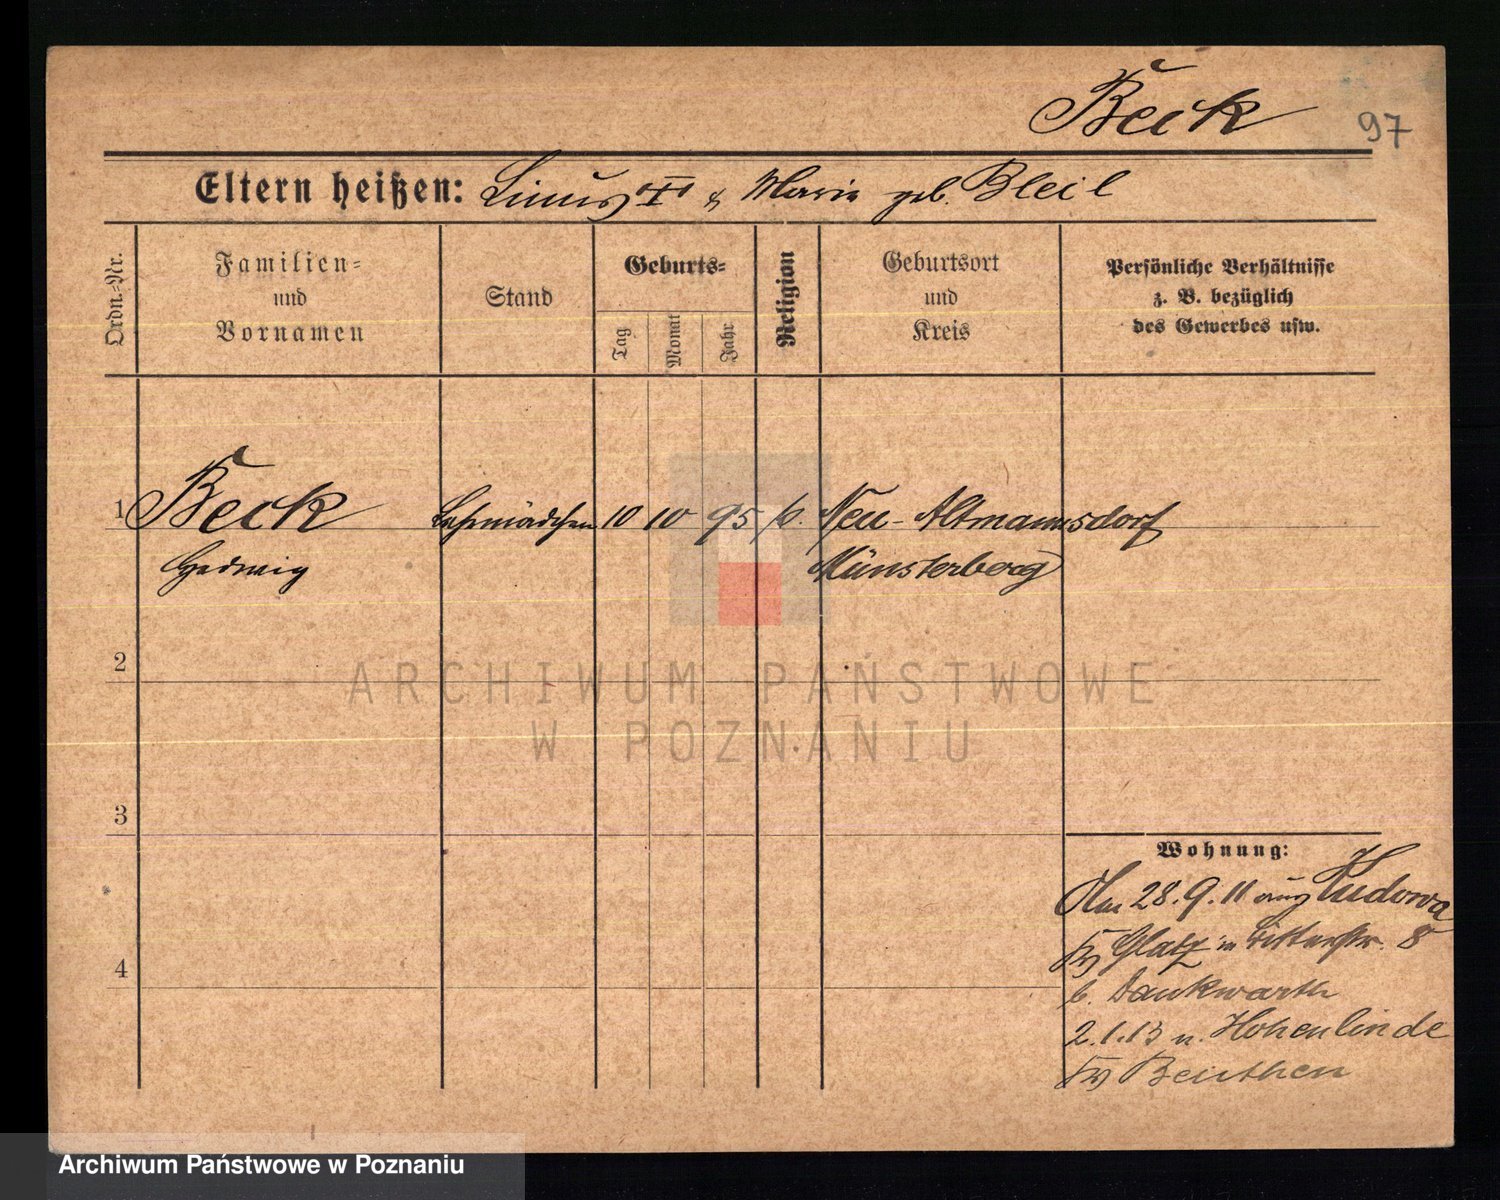 Beck
97
Eltern heißen: Linus "I" & Marie geb. Bleil
Ordn.-Nr.
Familien-
und
Vornamen
Stand
Geburts-
Tag
Monat
Jahr
Religion
Geburtsort
und
Kreis
Persönliche Verhältnisse
z. B. bezüglich
des Gewerbes usw.
1 Beck Lehrmädchen 10 10 95 k. Neu-Altmannsdorf
Hedwig Münsterberg
2
ARCHIWUM PAŃSTWOWE
W POZNANIU
3
Wohnung:
28.9.11 aus Kudowa
Glatz in Ritterstr. 8
b. Dankwarth
4
2.1.13 n. Hohenlinde
Beuthen
Archiwum Państwowe w Poznaniu